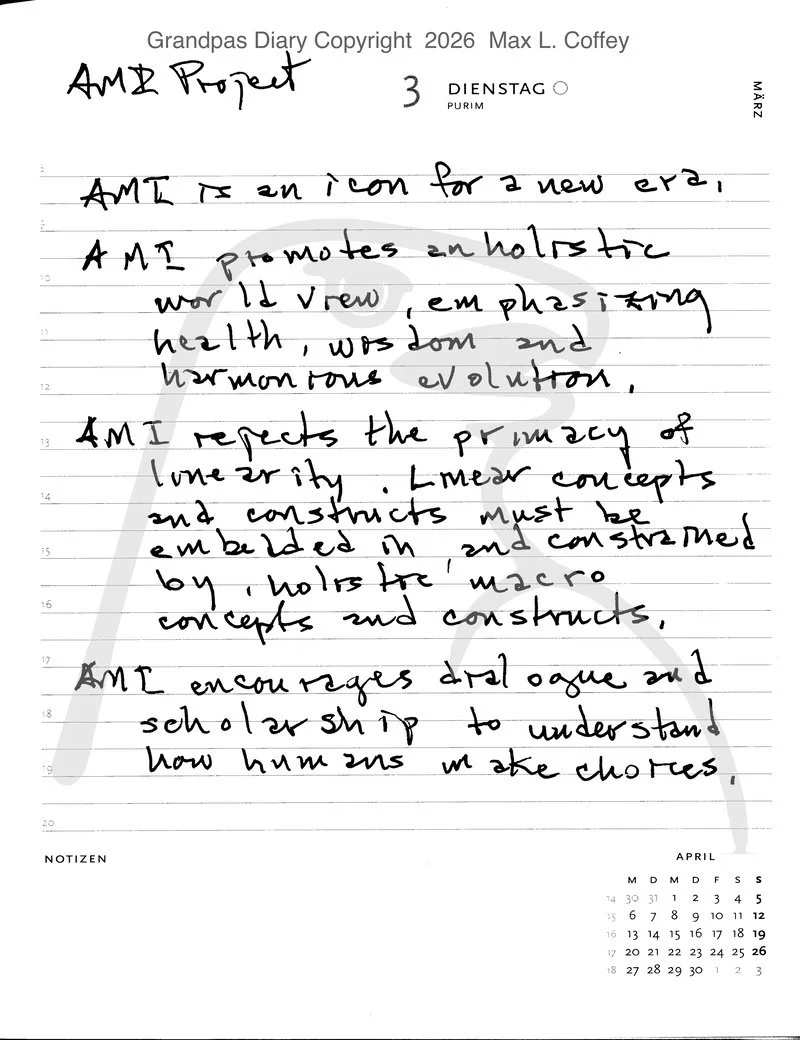 Grandpas Diary Copyright 2026 Max L. Coffey
AMI Project
3 DIENSTAG
PURIM
MÄRZ
AMI is an icon for a new era.
AMI promotes an holistic
world view, emphasizing
health, wisdom and
harmonious evolution.
AMI rejects the primacy of
linearity. Linear concepts
and constructs must be
embedded in, and constrained
by, holistic macro
concepts and constructs.
AMI encourages dialogue and
scholarship to understand
how humans make choices.
10
11
12
13
14
15
16
17
18
19
20
NOTIZEN
APRIL
M D M D F S S
14 30 31 1 2 3 4 5
15 6 7 8 9 10 11 12
16 13 14 15 16 17 18 19
17 20 21 22 23 24 25 26
18 27 28 29 30 1 2 3